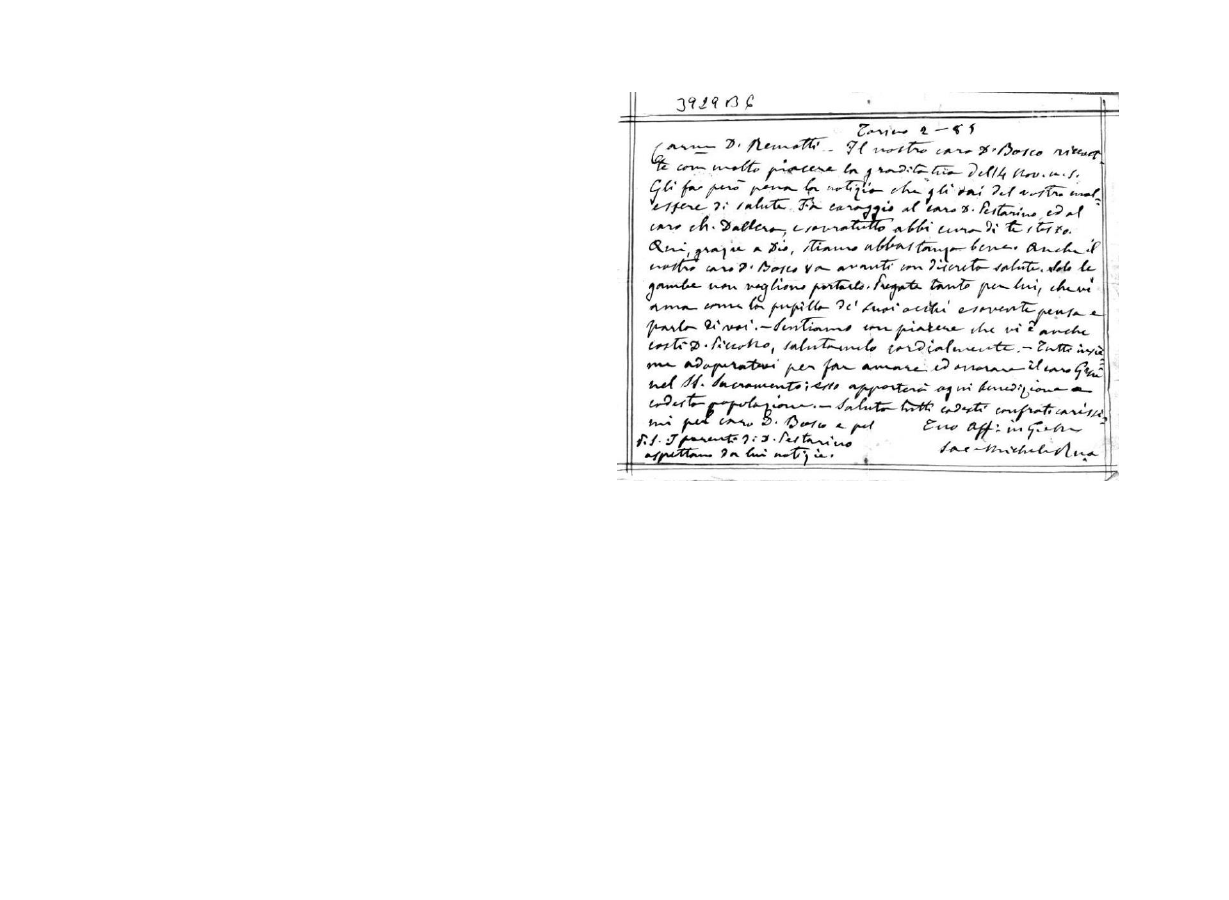 3929 B6
Torino 2 - 85
Carmo D. Remotti - Il nostro caro D. Bosco ricevet-
te con molto piacere la gradita tua del 14 Nov. u. s.
Gli fa però pena la notizia che gli dai del vostro mal-
essere di salute. Fa coraggio al caro D. Pestarino, ed al
caro ch. Dallera, e sovratutto abbi cura di te stesso.
Qui, grazie a Dio, stiamo abbastanza bene. Anche il
nostro caro D. Bosco va avanti con discreta salute. Solo le
gambe non vogliono portarlo. Pregate tanto per lui, che vi
ama come la pupilla de' suoi occhi e sovente pensa e
parla di voi. - Sentiamo con piacere che vi è anche
costì D. Piccono, salutamelo cordialmente. - Tutti insie-
me adoperatevi per far amare ed onorare il caro Gesù
nel SS. Sacramento; esso apporterà ogni benedizione a
codesta popolazione. - Saluta tutti codesti confrati carissi-
mi pel caro D. Bosco e pel
Tuo Aff. in G. e M.
P.S. I parenti di D. Pestarino
aspettano da lui notizie.
Sac. Michele Rua